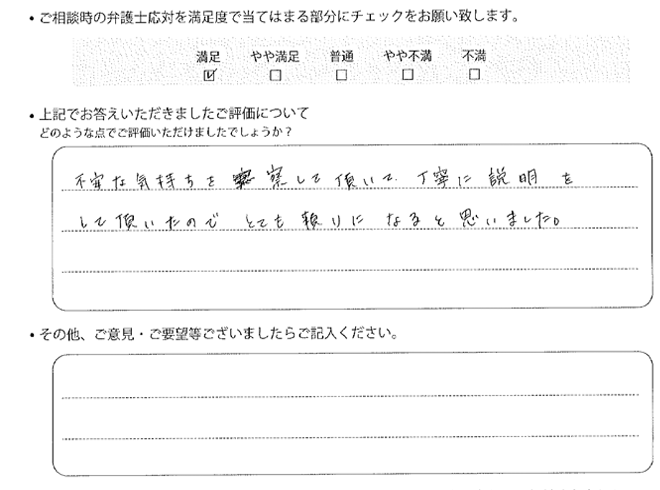 ・ご相談時の弁護士応対を満足度で当てはまる部分にチェックをお願い致します。
満足 やや満足 普通 やや不満 不満
☑ □ □ □ □
・上記でお答えいただきましたご評価について
どのような点でご評価いただけましたでしょうか？
不安な気持ちを察して頂いて、丁寧に説明を
して頂いたので とても頼りに なると思いました。
・その他、ご意見・ご要望等ございましたらご記入ください。